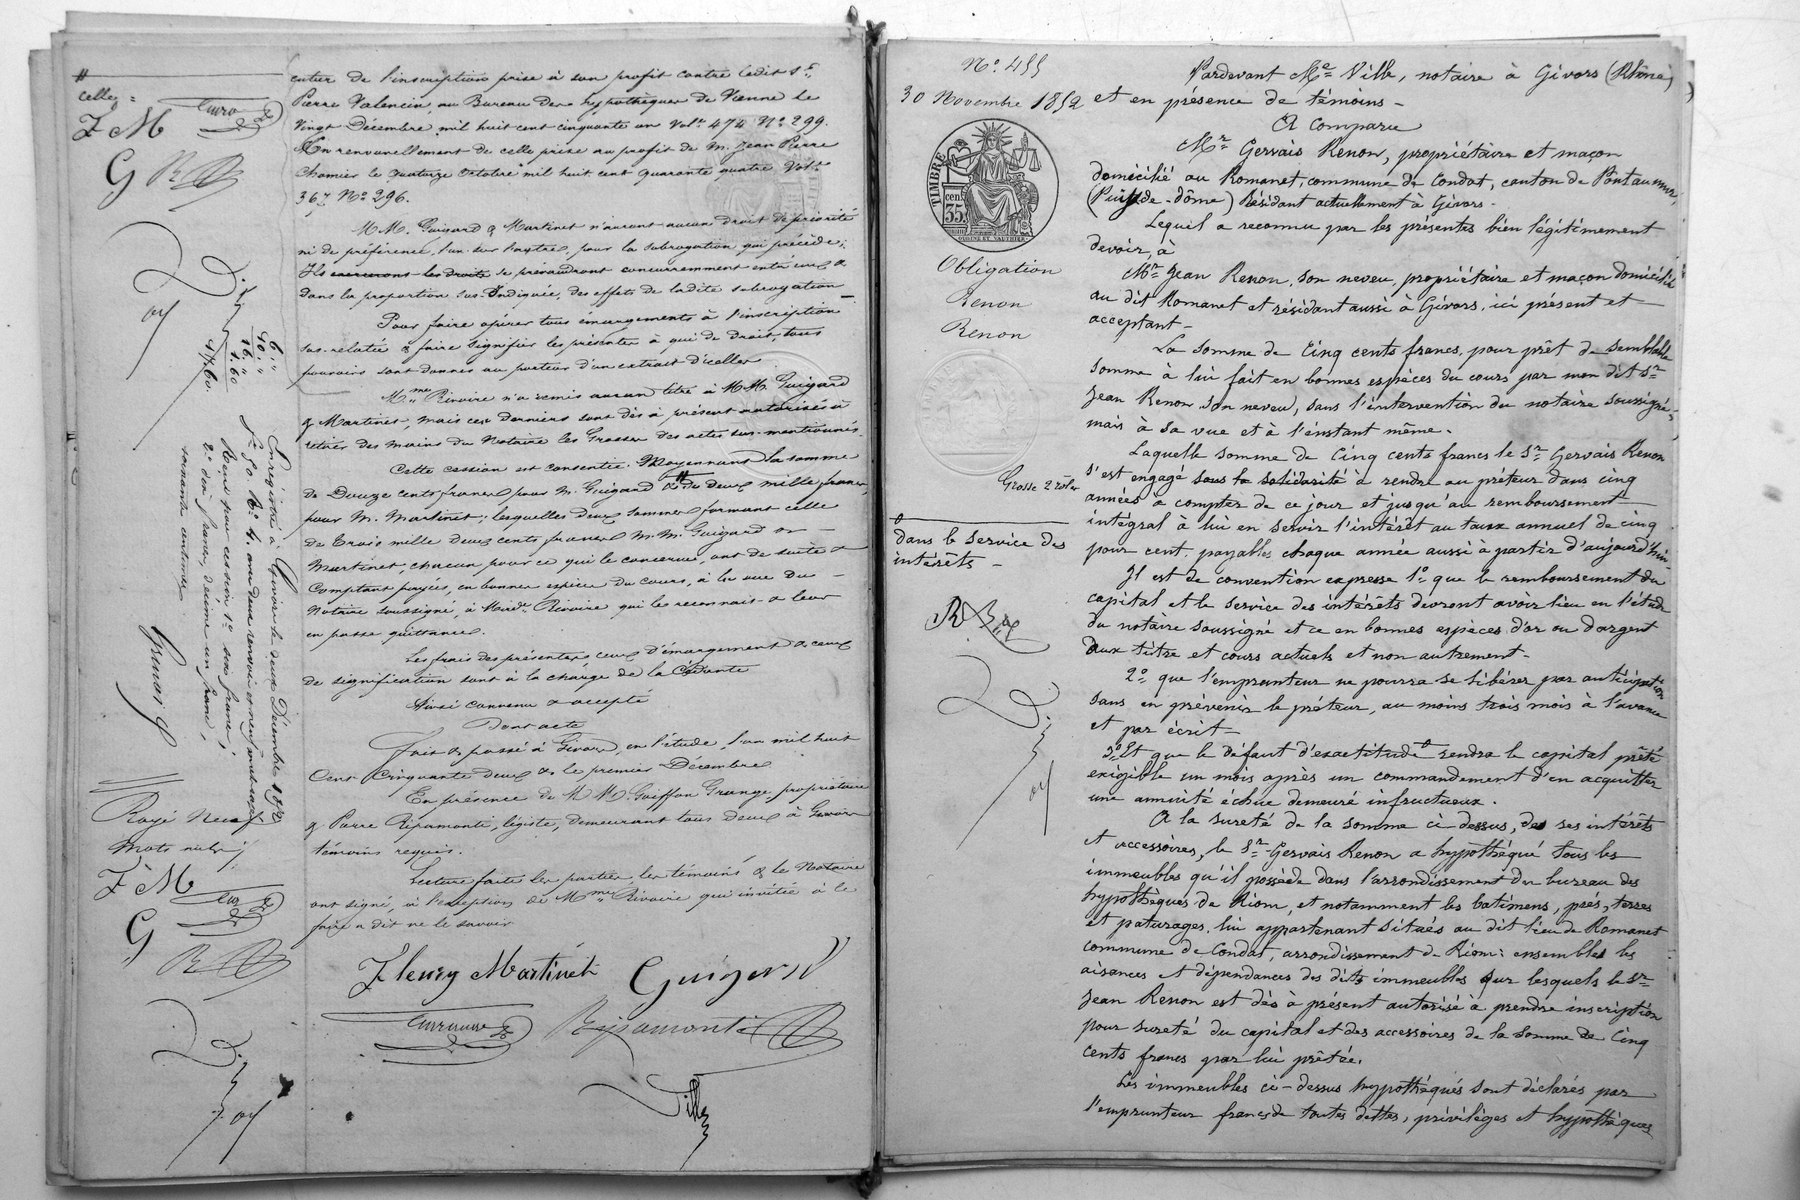 celle
cutier de l'inscription prise à son profit contre ledit Sr.
Pierre Valencin au Bureau des hypothèques de Vienne le
Vingt Décembre mil huit cent cinquante un Vol. 474 No 299.
En renouvellement de celle prise au profit de M. Jean Pierre
Chomier le quatorze Octobre mil huit cent quarante quatre Vol.
367 No 296.
M M. Guigard & Martinet n'auront aucun droit de priorité
ni de préférence l'un sur l'autre pour la subrogation qui précède;
Ils exerceront les droits se prévaudront concurremment entr'eux &
dans la proportion sus-Indiquée, des effets de ladite subrogation
Pour faire opérer tous émargements à l'inscription
sus-relatée & faire signifier les présentes à qui de Droit, tous
pouvoirs sont donnés au porteur d'un extrait d'icelles
Mme Rivoire n'a remis aucun titre à M M. Guigard
& Martinet, mais ces derniers sont dès à présent autorisés à
retirer des mains du Notaire les Grosses des actes sus-mentionnés.
Cette cession est consentie Moyennant la somme
de Douze cents francs pour M. Guigard & de deux mille francs
pour M. Martinet; lesquelles deux sommes formant celle
de Trois mille deux cents francs M.M. Guigard &
Martinet, chacun pour ce qui le concerne, ont de suite &
Comptant payées, en bonnes espèces du cours, à la vue du
Notaire soussigné, à Made Rivoire qui le reconnait & leur
en passe quittance.
Les frais des présentes ceux d'émargement & ceux
de signification sont à la charge de la Cédante
Ainsi convenu & accepté
Dont acte
Fait & passé à Givors, en l'étude, l'an mil huit
Cent Cinquante deux & le premier Décembre
En présence de M M. Goiffon Grange, propriétaire
& Pierre Ripamonti, légiste, demeurant tous deux à Givors
témoins requis.
Lecture faite les parties les témoins & le Notaire
ont signé, à l'exception de Mme Rivoire qui invitée à le
faire a dit ne le savoir
Fleury Martinet
Guigard
Ripamonti
Ville
6. "
10. "
16. "
1.60
17.60
Enregistré à Givors le deux Décembre 1852
Reçu pour cession
soixante centimes
Rayé Neuf
Mots nuls
F M
G
R
No. 455
30 Novembre 1852
TIMBRE
cen. 35
Obligation
Renon
Renon
Grosse 2 rôles
dans le service des
intérêts
Pardevant Me Ville, notaire à Givors (Rhône)
et en présence de témoins
A Comparu
Mr Gervais Renon, propriétaire et maçon
domicilié au Romanet, commune de Condat, canton de Pontaumur,
(Puy-de-dôme) Résidant actuellement à Givors.
Lequel a reconnu par les présentes bien légitimement
devoir, à
Mr Jean Renon, son neveu, propriétaire et maçon domicilié
au dit Romanet et résidant aussi à Givors, ici présent et
acceptant
La somme de Cinq cents francs, pour prêt de semblable
somme à lui fait en bonnes espèces du cours par mon dit Sr
Jean Renon son neveu, sans l'intervention du notaire soussigné
mais à sa vue et à l'instant même.
Laquelle somme de Cinq cents francs le Sr Gervais Renon
s'est engagé sous la solidarité à rendre au prêteur dans cinq
années à compter de ce jour et jusqu'au remboursement
intégral à lui en servir l'intérêt au taux annuel de cinq
pour cent, payables chaque année aussi à partir d'aujourd'hui
Il est de convention expresse 1o que le remboursement du
capital et le service des intérêts devront avoir lieu en l'étude
du notaire soussigné et ce en bonnes espèces d'or ou d'argent
aux titre et cours actuels et non autrement
2o que l'emprunteur ne pourra se libérer par anticipation
sans en prévenir le prêteur, au moins trois mois à l'avance
et par écrit
3o Et que le défaut d'exactitude rendra le capital prêté
exigible un mois après un commandement d'en acquitter
une annuité échue demeuré infructueux.
A la sureté de la somme ci dessus, de ses intérêts
et accessoires, le Sr Gervais Renon a hypothéqué tous les
immeubles qu'il possède dans l'arrondissement du bureau des
hypothèques de Riom, et notamment les batimens, prés, terres
et paturages, lui appartenant situés au dit lieu de Romanet
commune de Condat, arrondissement de Riom; ensemble les
aisances et dépendances des dits immeubles sur lesquels le Sr
Jean Renon est dès à présent autorisé à prendre inscription
pour sureté du capital et des accessoires de la somme de Cinq
cents francs par lui prêtée.
Les immeubles ci-dessus hypothéqués sont déclarés par
l'emprunteur francs de toutes dettes, privilèges et hypothèques